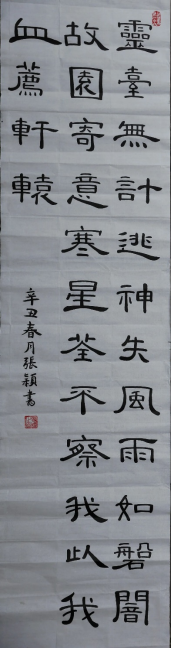 靈臺無計逃神失風雨如磐闇
故園寄意寒星荃不察我以我
血薦軒轅
辛丑春月張穎書